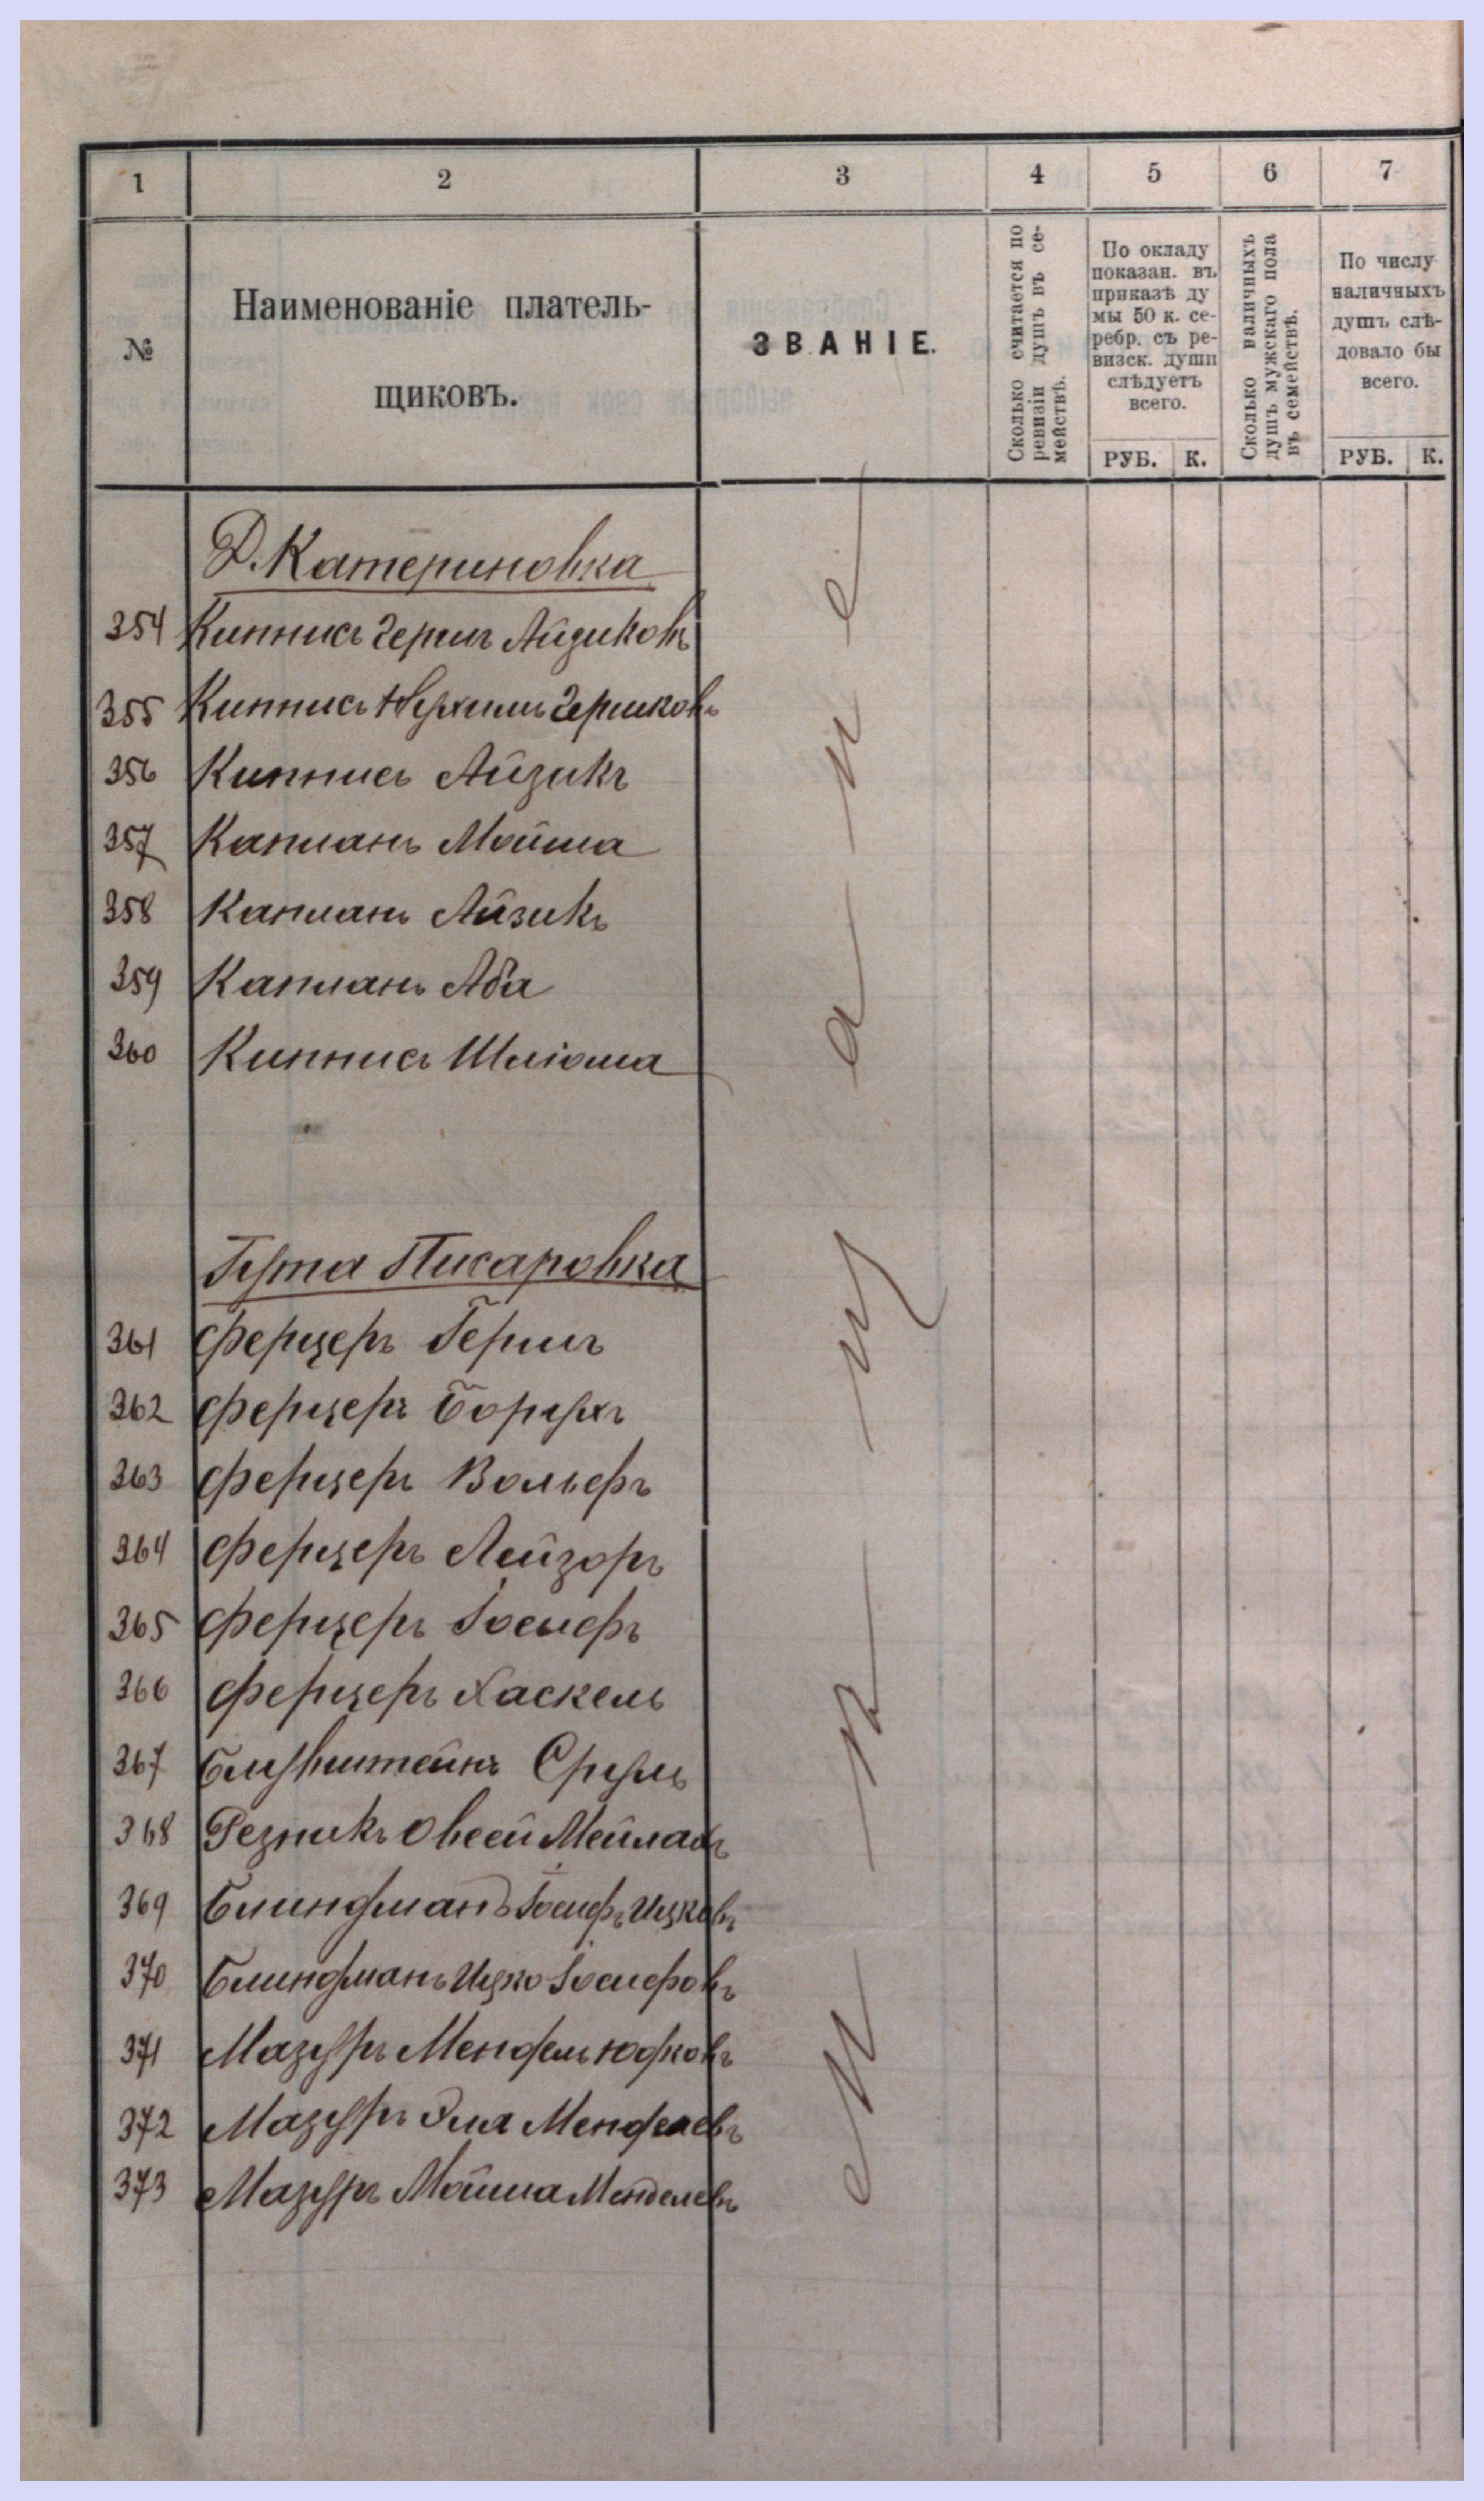 1 2 3 4 5 6 7
№
Наименованіе платель-
щиковъ.
ЗВАНІЕ.
Сколько считается по
ревизіи душъ въ се-
мействѣ.
По окладу
показан. въ
приказѣ ду
мы 50 к. се-
ребр. съ ре-
визск. души
слѣдуетъ
всего.
РУБ. К.
Сколько наличныхъ
душъ мужскаго пола
въ семействѣ.
По числу
наличныхъ
душъ слѣ-
довало бы
всего.
РУБ. К.
Д. Катериновка
354 Киннисъ Гершъ Айзиковъ
355 Киннисъ Нухимъ Гершковъ
356 Киннисъ Айзикъ
357 Капланъ Мойша
358 Капланъ Айзикъ
359 Капланъ Аба
360 Киннисъ Шліома
Гута Писаровка
361 Ферцеръ Гершъ
362 Ферцеръ Борухъ
363 Ферцеръ Вольфъ
364 Ферцеръ Лейзоръ
365 Ферцеръ Іосифъ
366 Ферцеръ Хаскель
367 Блувштейнъ Сруль
368 Резникъ Овсей Мейлахъ
369 Блиндманъ Іосифъ Ицковъ
370 Блиндманъ Ицко Іосифовъ
371 Мазуръ Мендель Юдковъ
372 Мазуръ Эля Менделевъ
373 Мазуръ Мойша Менделевъ
М ѣ щ а н е